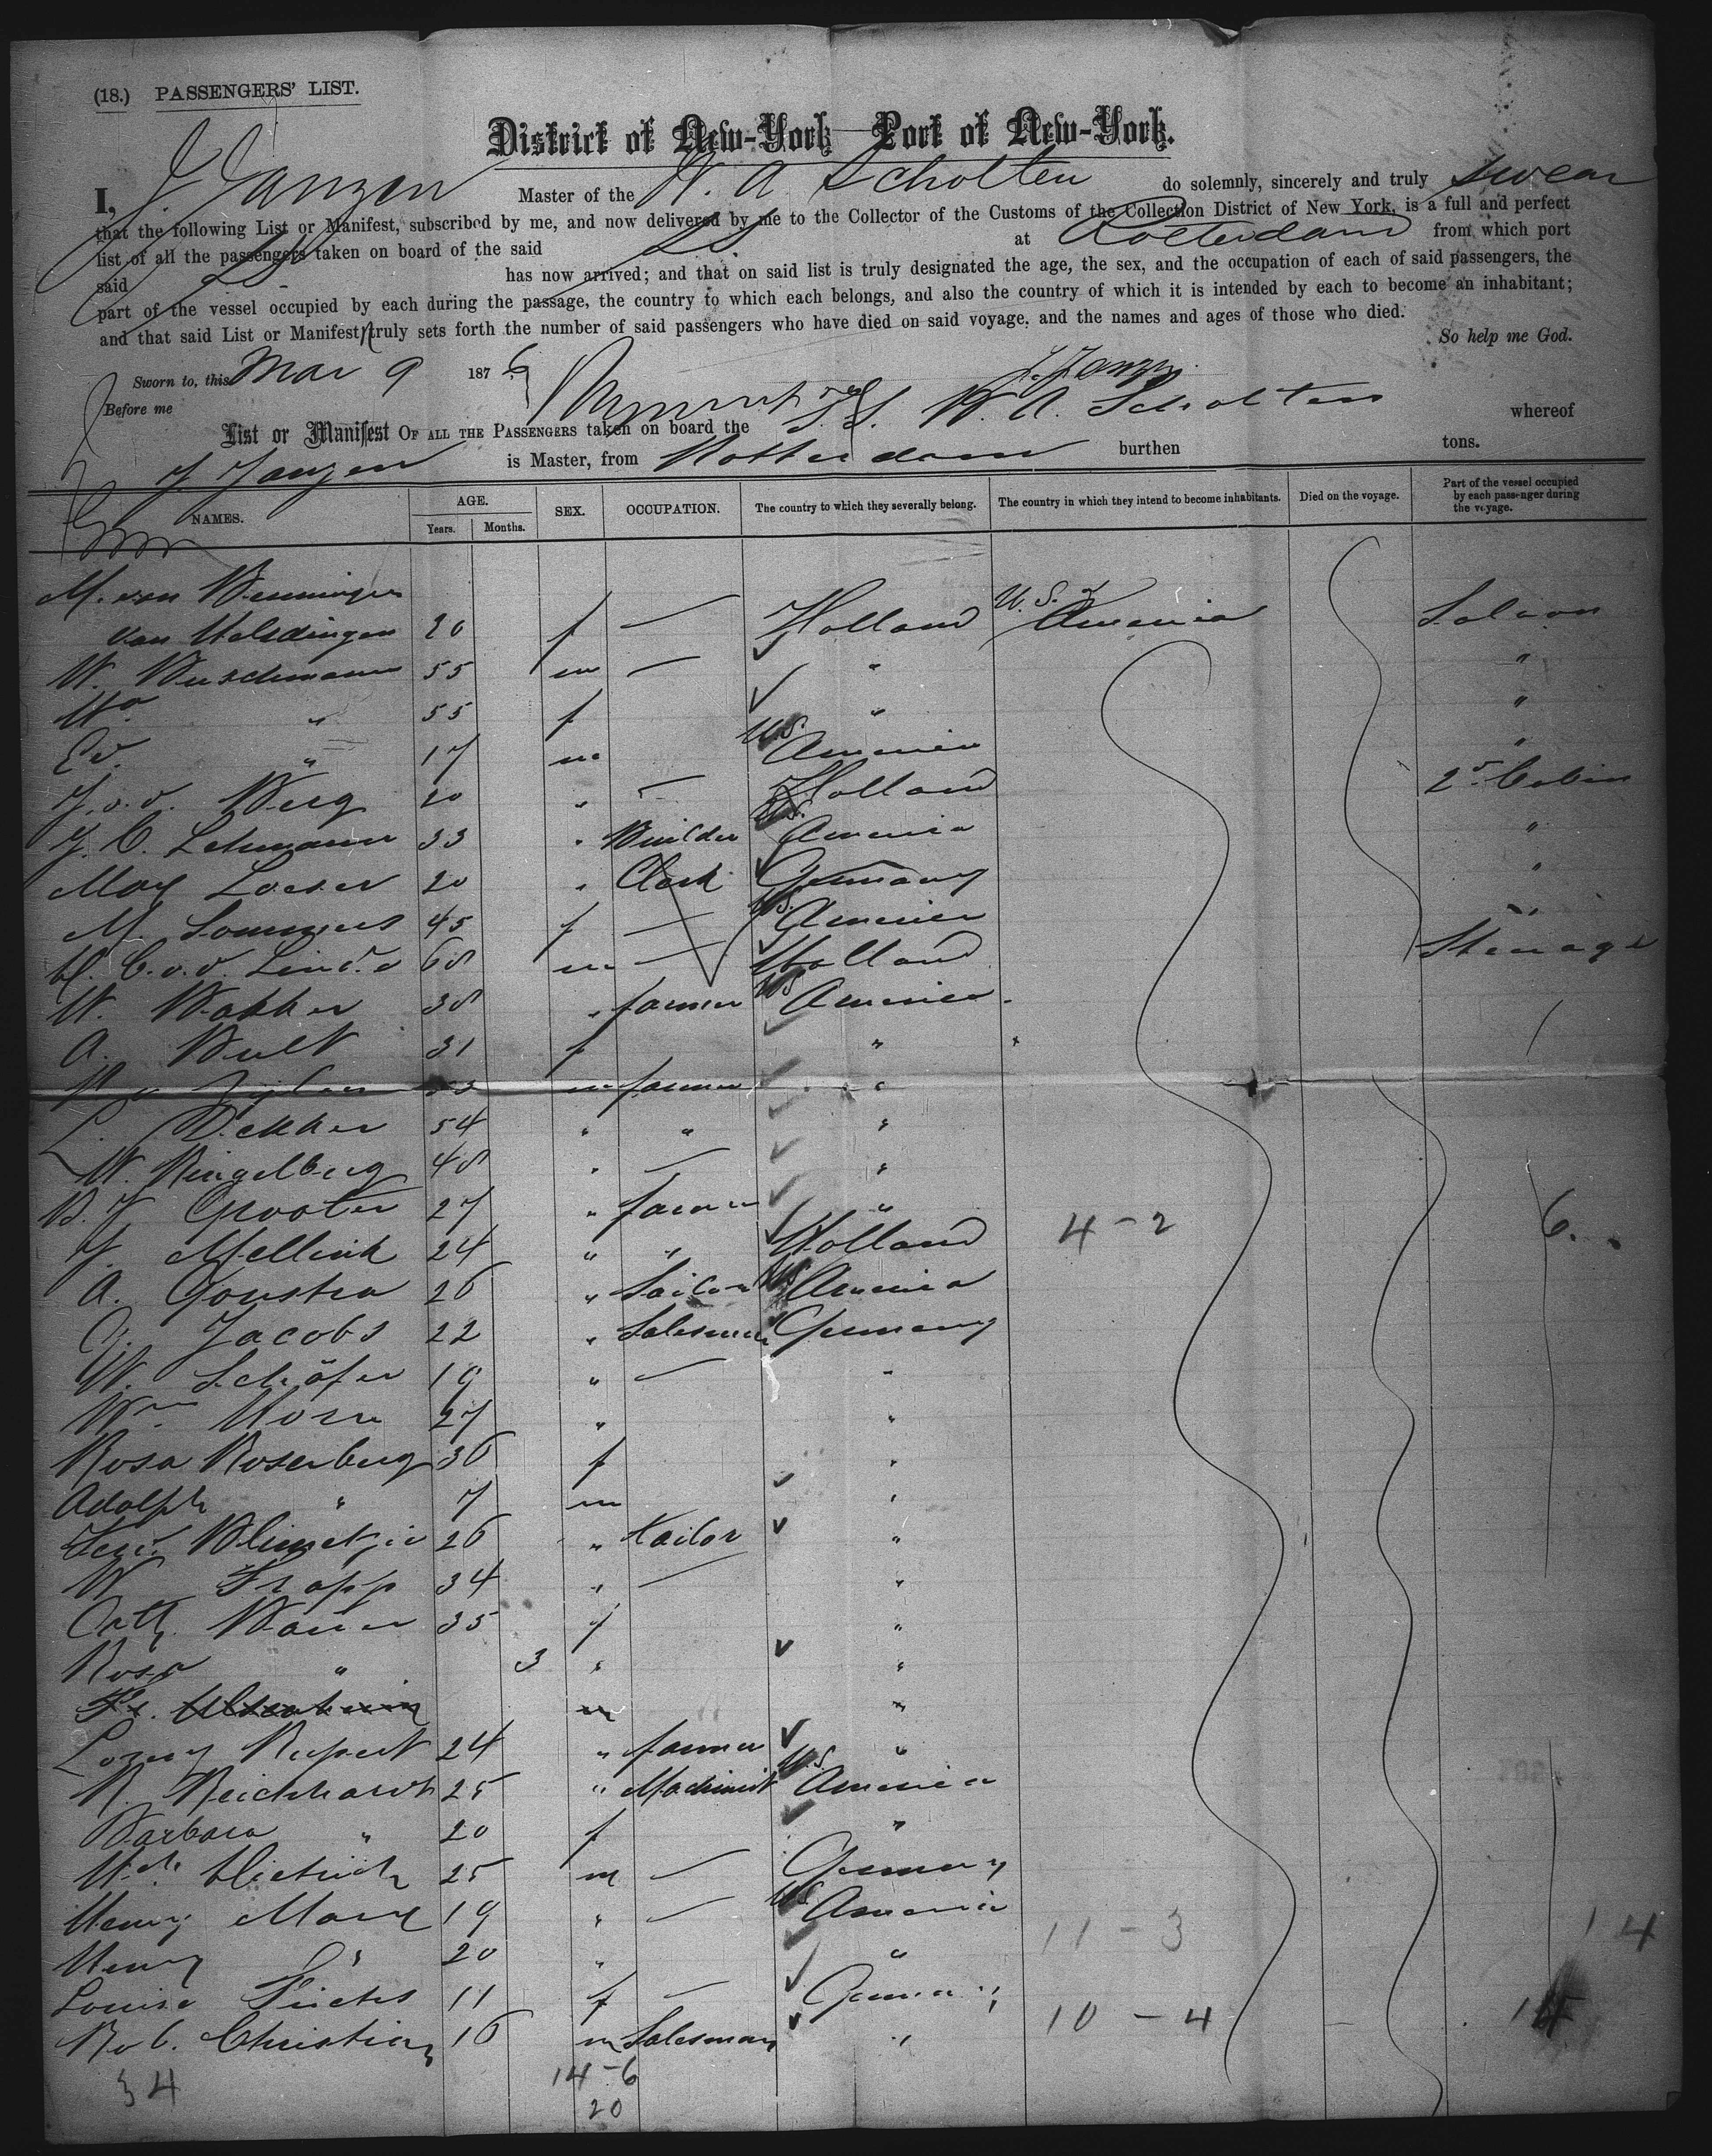 (18.) PASSENGERS' LIST.
District of New-York Port of New-York.
I, J Janzen Master of the W. A. Scholten do solemnly, sincerely and truly swear
that the following List or Manifest, subscribed by me, and now delivered by me to the Collector of the Customs of the Collection District of New York, is a full and perfect
list of all the passengers taken on board of the said at Rotterdam from which port
said has now arrived; and that on said list is truly designated the age, the sex, and the occupation of each of said passengers, the
part of the vessel occupied by each during the passage, the country to which each belongs, and also the country of which it is intended by each to become an inhabitant;
and that said List or Manifest truly sets forth the number of said passengers who have died on said voyage, and the names and ages of those who died.
So help me God.
Sworn to, this Mar 9 1876 J. Janzen
Before me
List or Manifest OF ALL THE PASSENGERS taken on board the S.S. W. A. Scholten whereof
J. Janzen is Master, from Rotterdam burthen tons.
NAMES. AGE. Years. Months. SEX. OCCUPATION. The country to which they severally belong. The country in which they intend to become inhabitants. Died on the voyage. Part of the vessel occupied by each passenger during the voyage.
M. van
van 20 f — Holland U.S. of America Saloon
W. Buschmann 55 m — " "
" 55 f " "
Ed. " 17 m U.S. America "
J. v. d. Berg 20 " — Holland 2d Cabin
J. C. Lehmann 33 " Builder U.S. America "
Max Loeser 20 " Clerk Germany "
M. Sommers 45 f — U.S. America "
H. C. v. d. Linde 68 m — Holland Steerage
W. Bakker 38 " farmer U.S. America
A. Bult 31 f " "
m farmer "
L. Dekker 54 " " "
W. Ringelberg 48 " — "
B. J. Grooter 27 " farmer " 4-2 6.
J. Mellink 24 " " Holland
A. Goustra 26 " Sailor U.S. America
Jacobs 22 " Salesman Germany
W. Schäfer 19 " — "
Wm. Horn 27 " "
Rosa Rosenberg 36 f "
Adolph " 7 m "
26 " tailor "
W 34 " — "
Cath. Bauer 35 f "
Rosa " 3 " "
m "
Lorenz Rupert 24 " farmer "
R. Reichhardt 25 " Machinist U.S. America
Barbara " 20 f "
Dietrich 25 m — Germany
Henry Marx 19 " — U.S. America 11-3 14
Henry 20 " "
Louise Fuchs 11 f — Germany
Rob. Christian 16 m Salesman " 10-4 14
34 14-6
20